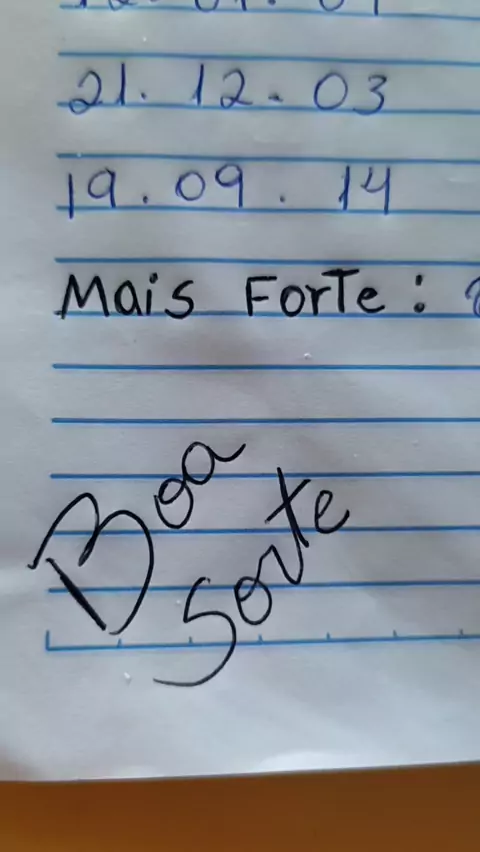 21. 12. 03
19. 09. 14
Mais Forte:
Boa
Sorte